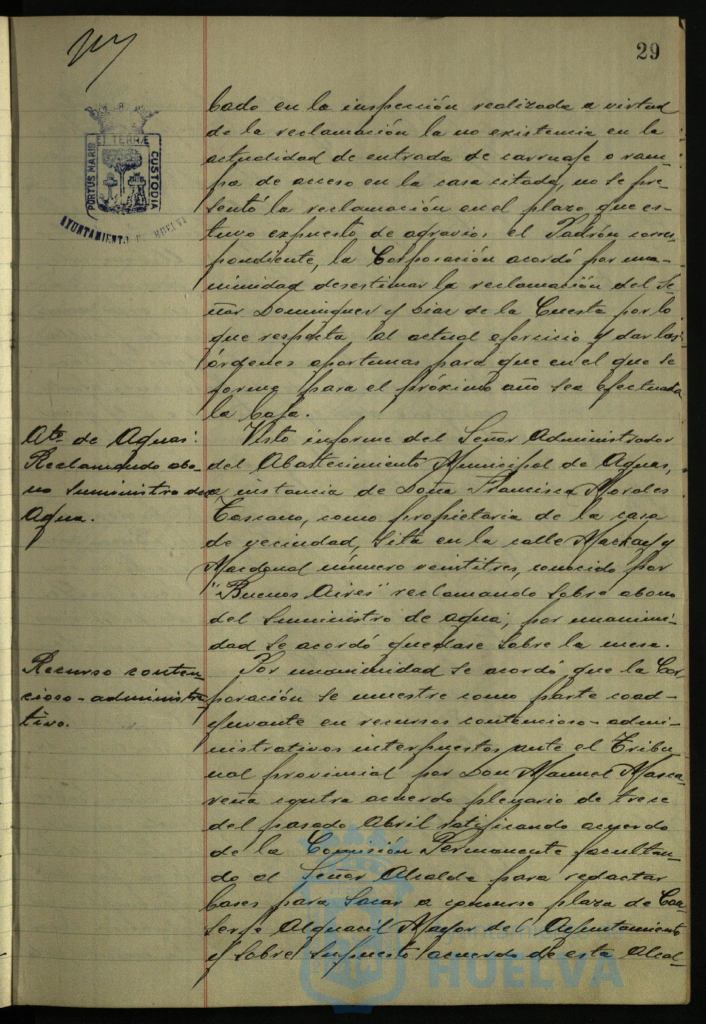 29
PORTUS MARIS ET TERRÆ CUSTODIA
AYUNTAMIENTO DE HUELVA
bado en la inspección realizada a virtud
de la reclamación la no existencia en la
actualidad de entrada de carruaje o ram-
pa de acceso en la casa citada, no se pre-
sentó la reclamación en el plazo que es-
tuvo expuesto de agravios el Padrón corres-
pondiente, la Corporación acordó por una-
nimidad desestimar la reclamación del Se-
ñor Dominguez y Diaz de la Cuesta por lo
que respecta al actual ejercicio y dar las
órdenes oportunas para que en el que se
forme para el próximo año sea efectuada
la baja.
Abto. de Aguas:
Reclamando abo-
no suministro de
Agua.
Visto informe del Señor Administrador
del Abastecimiento Municipal de Aguas,
a instancia de Doña Francisca Morales
Toscano, como propietaria de la casa
de vecindad, sita en la calle Mackay y
Macdonal número veintitres, conocido por
"Buenos Aires" reclamando sobre abono
del suministro de agua, por unanimi-
dad se acordó quedase sobre la mesa.
Recurso conten-
cioso-administra-
tivo.
Por unanimidad se acordó que la Cor-
poración se muestre como parte coad-
yuvante en recursos contencioso-admi-
nistrativos interpuestos ante el Tribu-
nal provincial por Don Manuel Masca-
reña contra acuerdo plenario de trece
del pasado Abril ratificando acuerdo
de la Comisión Permanente facultan-
do al Señor Alcalde para redactar
bases para sacar a concurso plaza de Con-
serje Alguacil Mayor del Ayuntamiento
y sobre supuesto acuerdo de esta Alcal-
HUELVA